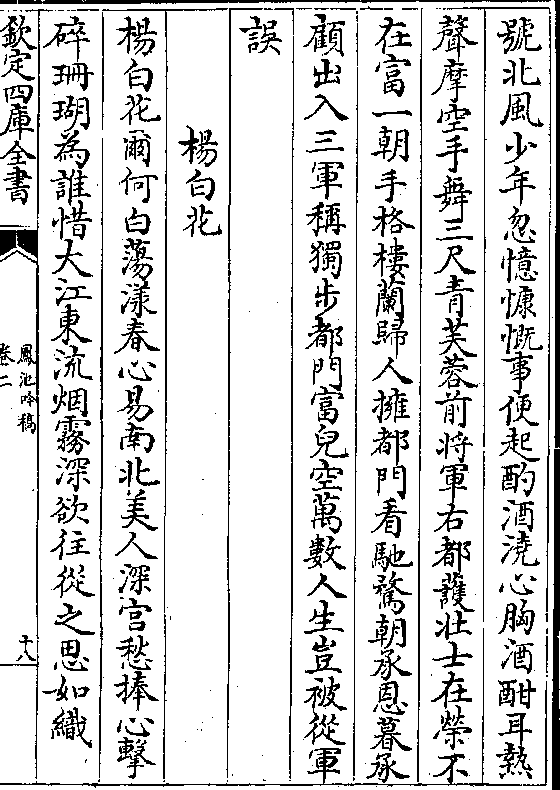 號北風少年忽憶慷慨事便起酌酒澆心胸酒酣耳熱
聲摩空手舞三尺青芙蓉前將軍右都護壯士在榮不
在富一朝手格樓蘭歸人擁都門看馳騖朝承恩暮承
顧出入三軍稱獨步都門富兒空萬數人生豈被從軍
誤
楊白花
楊白花爾何白蕩漾春心易南北美人深宫愁捧心擊
碎珊瑚為誰惜大江東流烟霧深欲往從之思如織
欽定四庫全書
鳳池吟稿
卷二
十八